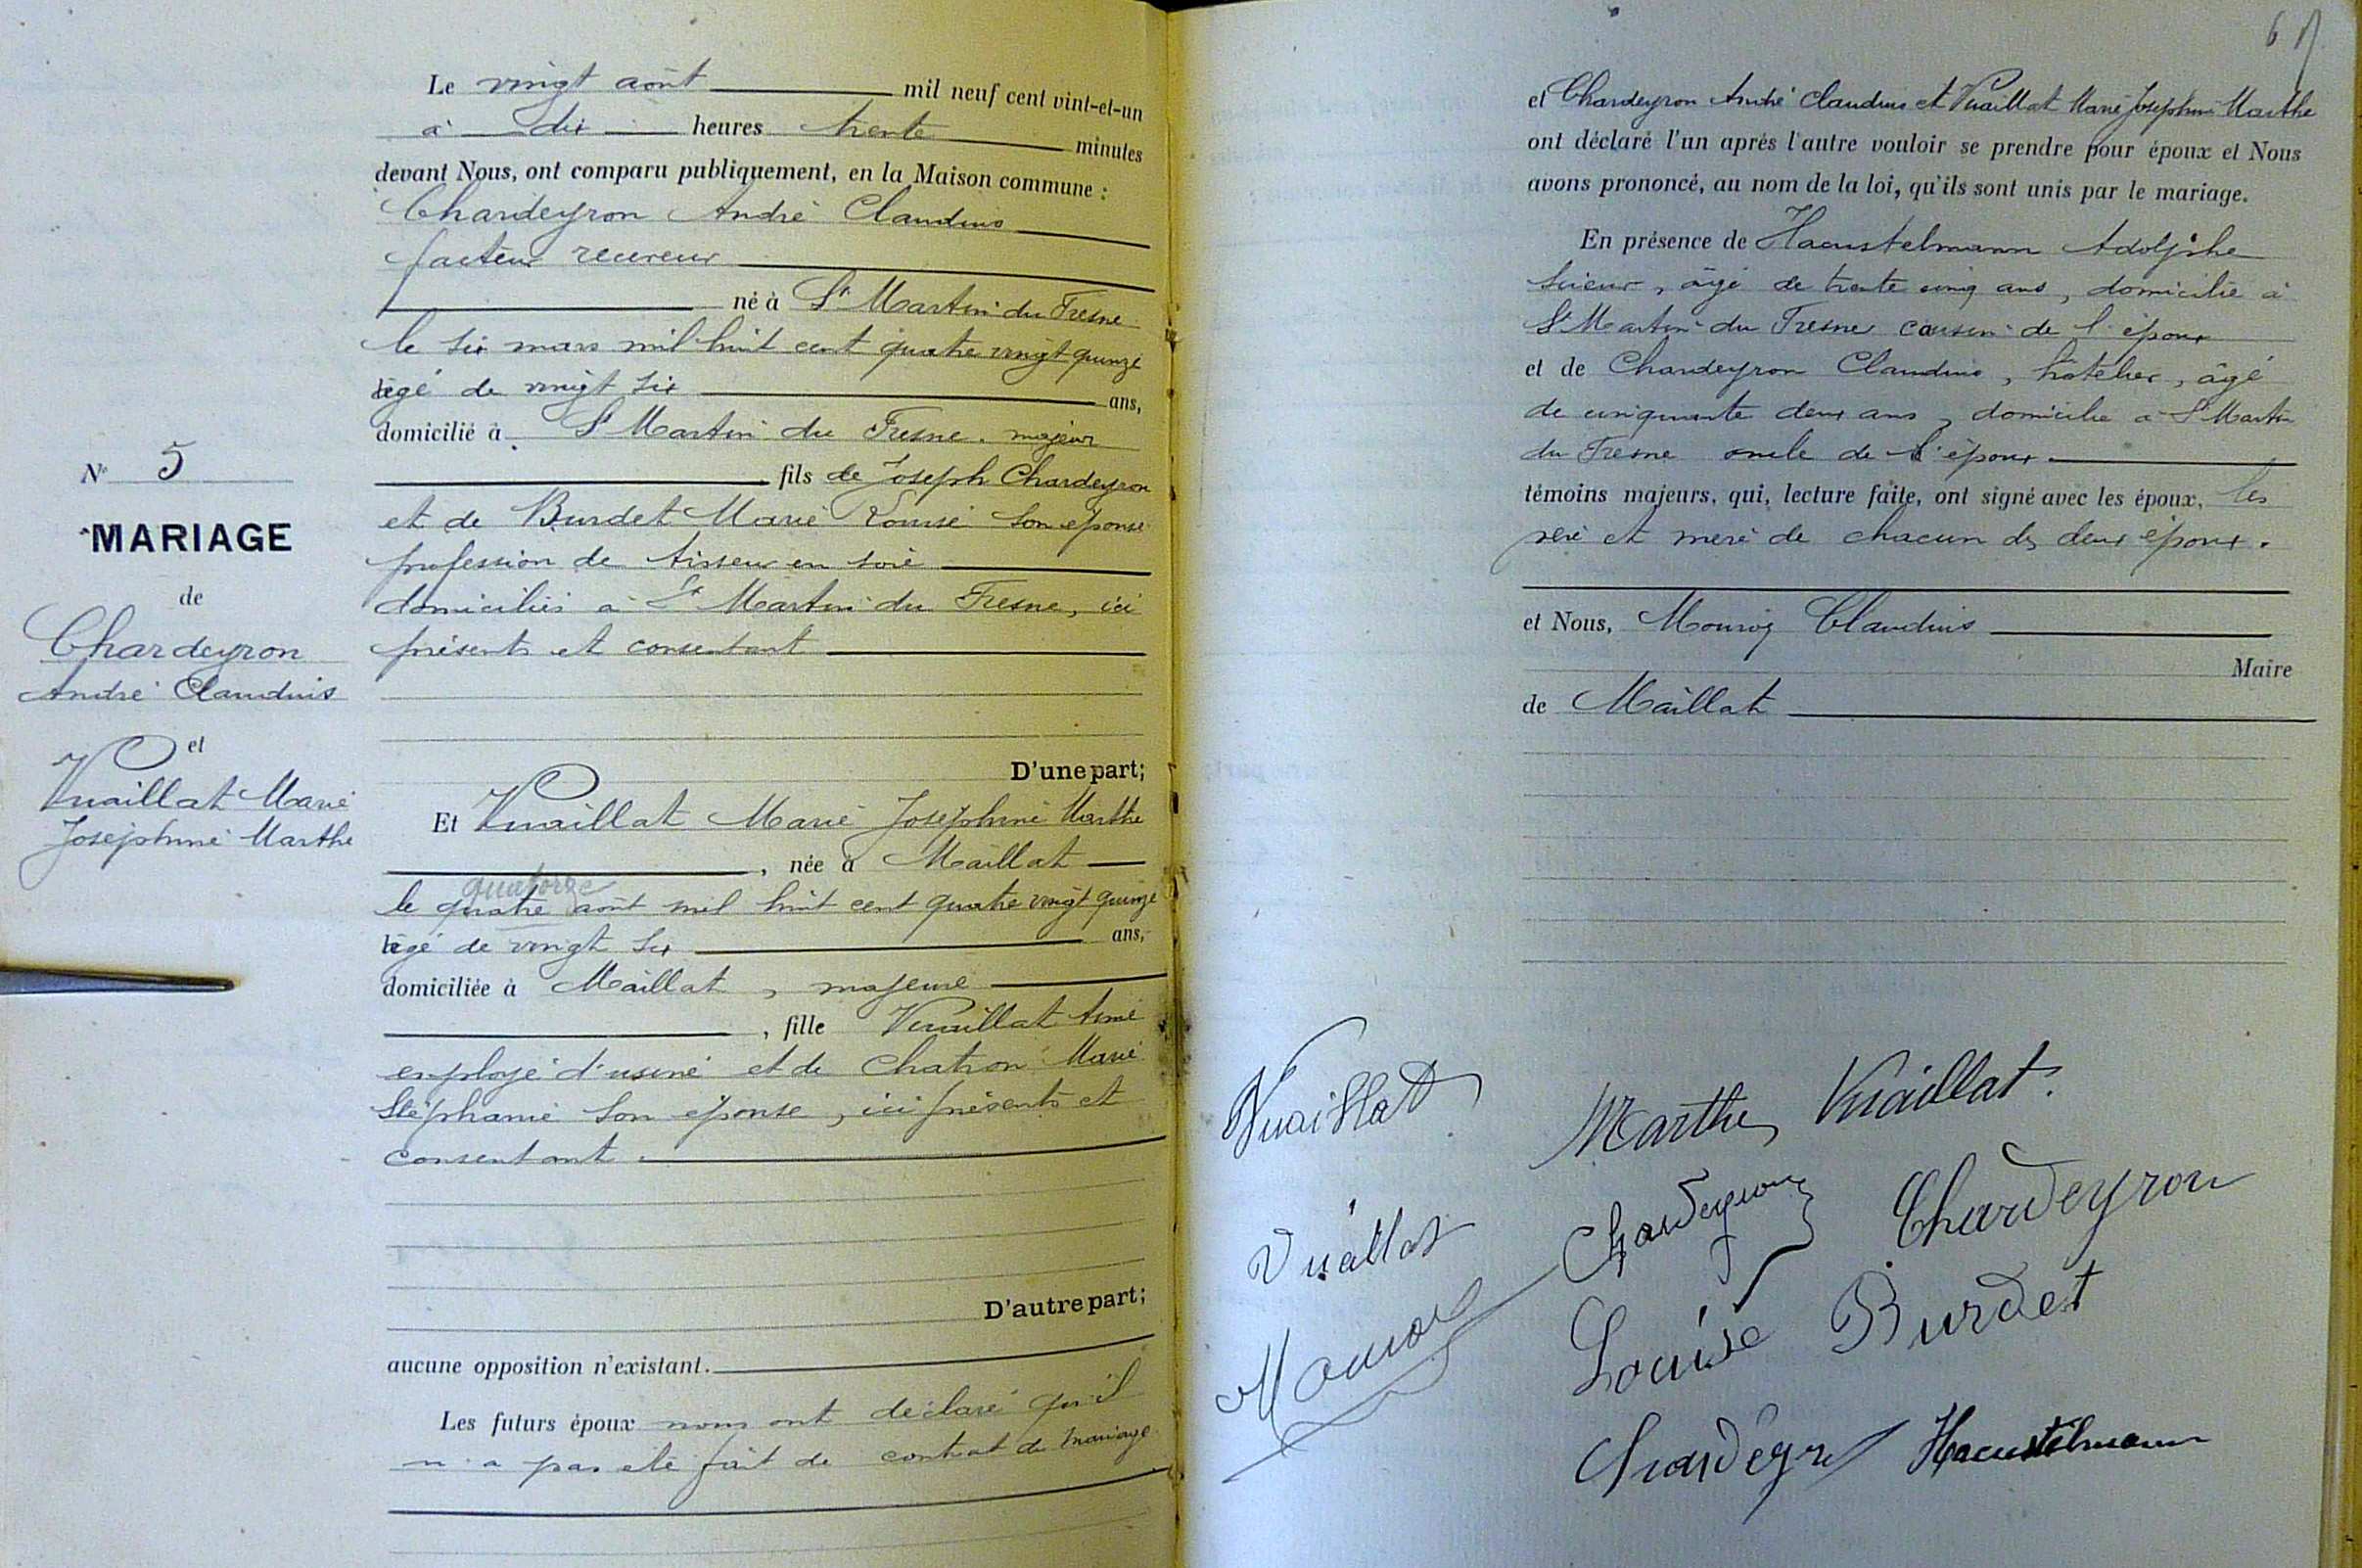 Le vingt août mil neuf cent vint-et-un
à dix heures trente minutes
devant Nous, ont comparu publiquement, en la Maison commune :
Chardeyron André Claudius
facteur receveur
né à St Martin du Fresne
le six mars mil huit cent quatre vingt quinze
âgé de vingt six ans,
domicilié à St Martin du Fresne. majeur
fils de Joseph Chardeyron
et de Burdet Marie Louise son épouse
profession de tisseur en soie
domiciliés à St Martin du Fresne, ici
présents et consentant
D'une part;
Et Vuaillat Marie Joséphine Marthe
, née à Maillat
quatorze
le quatre août mil huit cent quatre vingt quinze
âgé de vingt six ans,
domiciliée à Maillat, majeure
, fille Vuaillat Aimé
employé d'usine et de Chatron Marie
Stéphanie son épouse, ici présents et
consentant.
D'autre part;
aucune opposition n'existant.
Les futurs époux nous ont déclaré qu'il
n'a pas été fait de contrat de mariage
N° 5
MARIAGE
de
Chardeyron
André Claudius
et
Vuaillat Marie
Joséphine Marthe
et Chardeyron André Claudius et Vuaillat Marie Joséphine Marthe
ont déclaré l'un aprés l'autre vouloir se prendre pour époux et Nous
avons prononcé, au nom de la loi, qu'ils sont unis par le mariage.
En présence de Haenstelmann Adolphe
scieur, âgé de trente cinq ans, domicilié à
St Martin du Fresne cousin de l'époux
et de Chardeyron Claudius, hôtelier, âgé
de cinquante deux ans, domicilié à St Martin
du Fresne oncle de l'époux
témoins majeurs, qui, lecture faite, ont signé avec les époux, les
père et mère de chacun des deux époux.
et Nous, Claudius
Maire
de Maillat
Vuaillat
Marthe Vuaillat.
Vuaillat
Chardeyron
Chardeyron
Louise Burdet
Haenstelmann